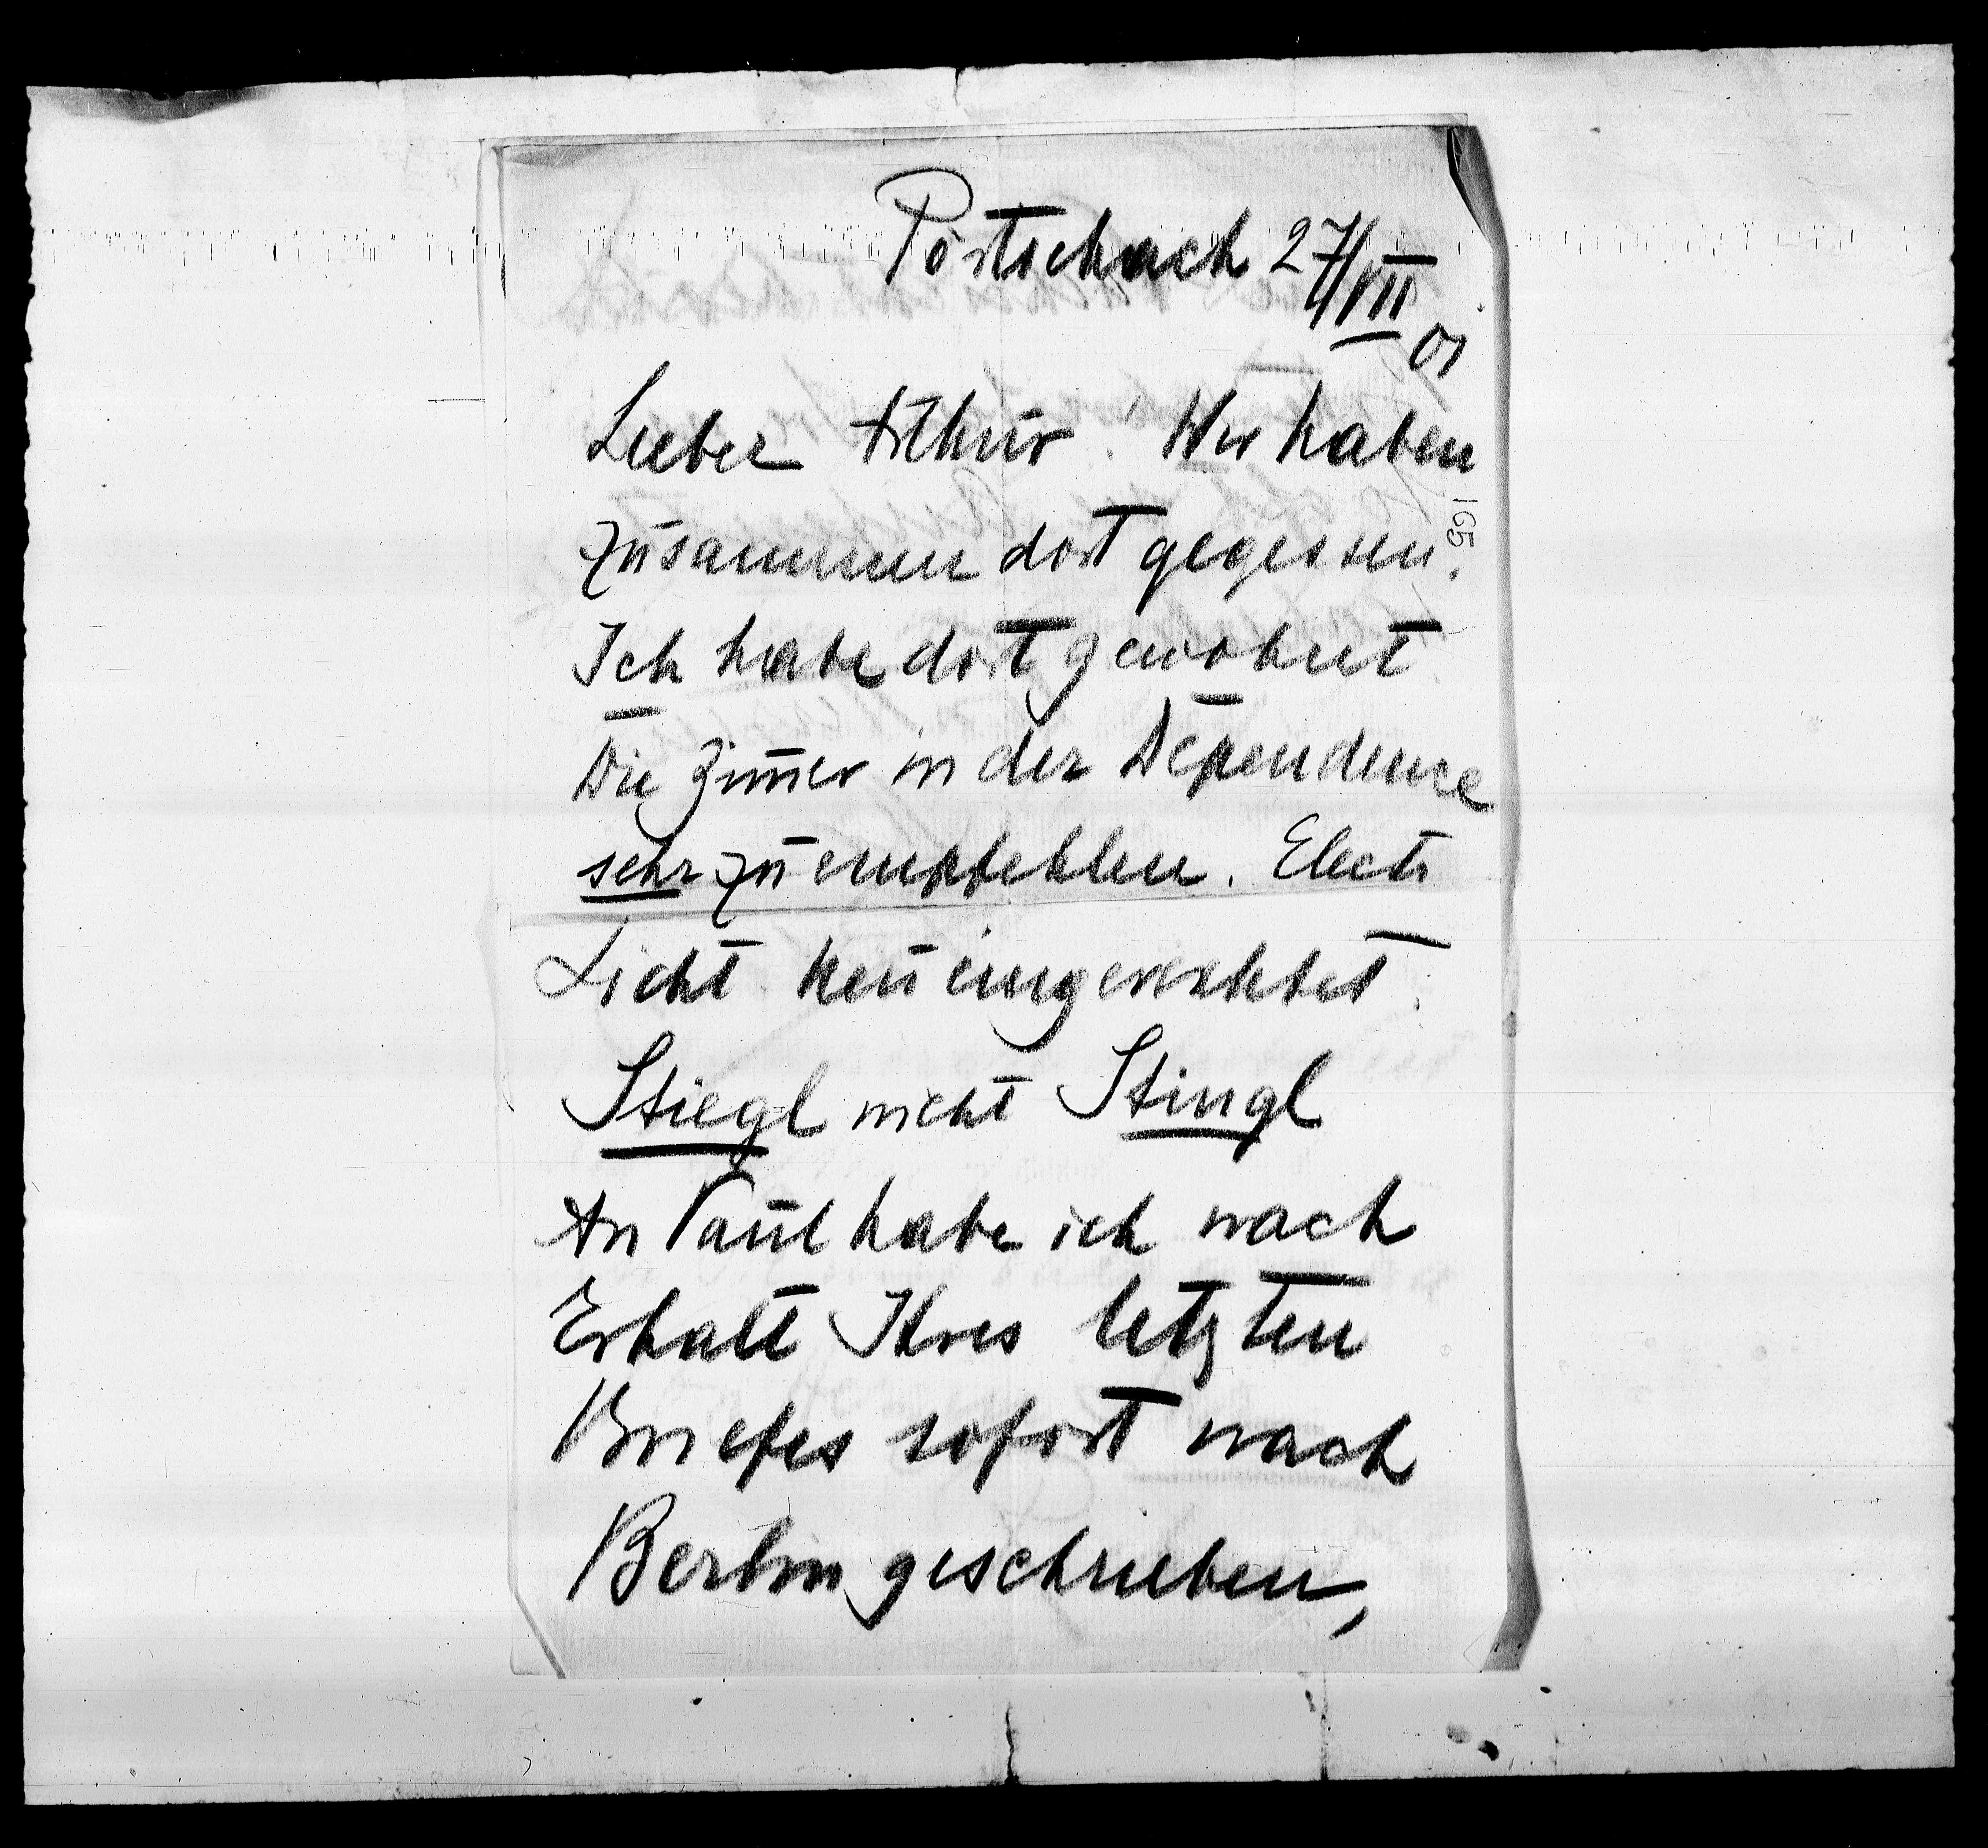 Pörtschach 27/VII
01
Lieber Arthur! Wir haben
zusammen dort gegessen.
165
Ich habe dort gewohnt
Die Zim̅er in der Dependence
sehr zu empfehlen. Electr
Licht neu eingerichtet.
Stiegl nicht Stingl
An Paul habe ich nach
Erhalt Ihres letzten
Briefes sofort nach
Berlin geschrieben,